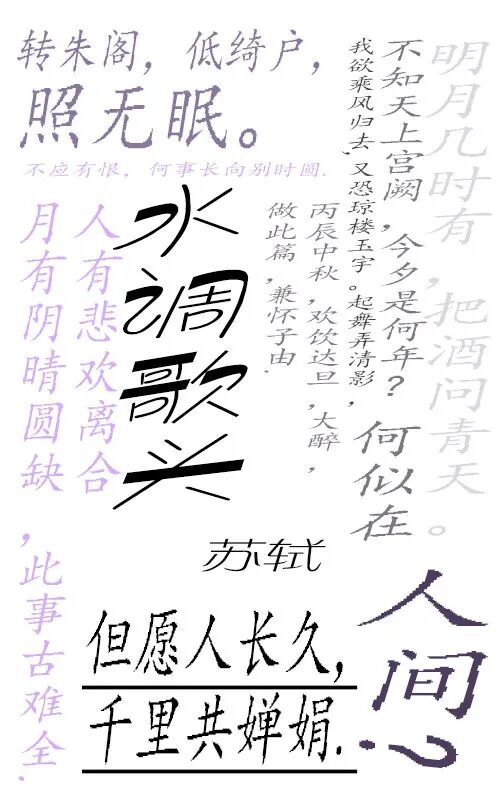 水调歌头
苏轼
丙辰中秋，欢饮达旦，大醉，
做此篇,兼怀子由.
明月几时有，把酒问青天。
不知天上宫阙,今夕是何年?
我欲乘风归去,又恐琼楼玉宇。起舞弄清影，
何似在
人间?
转朱阁，低绮户，
照无眠。
不应有恨，何事长向别时圆.
人有悲欢离合
月有阴晴圆缺，此事古难全.
但愿人长久,
千里共婵娟.